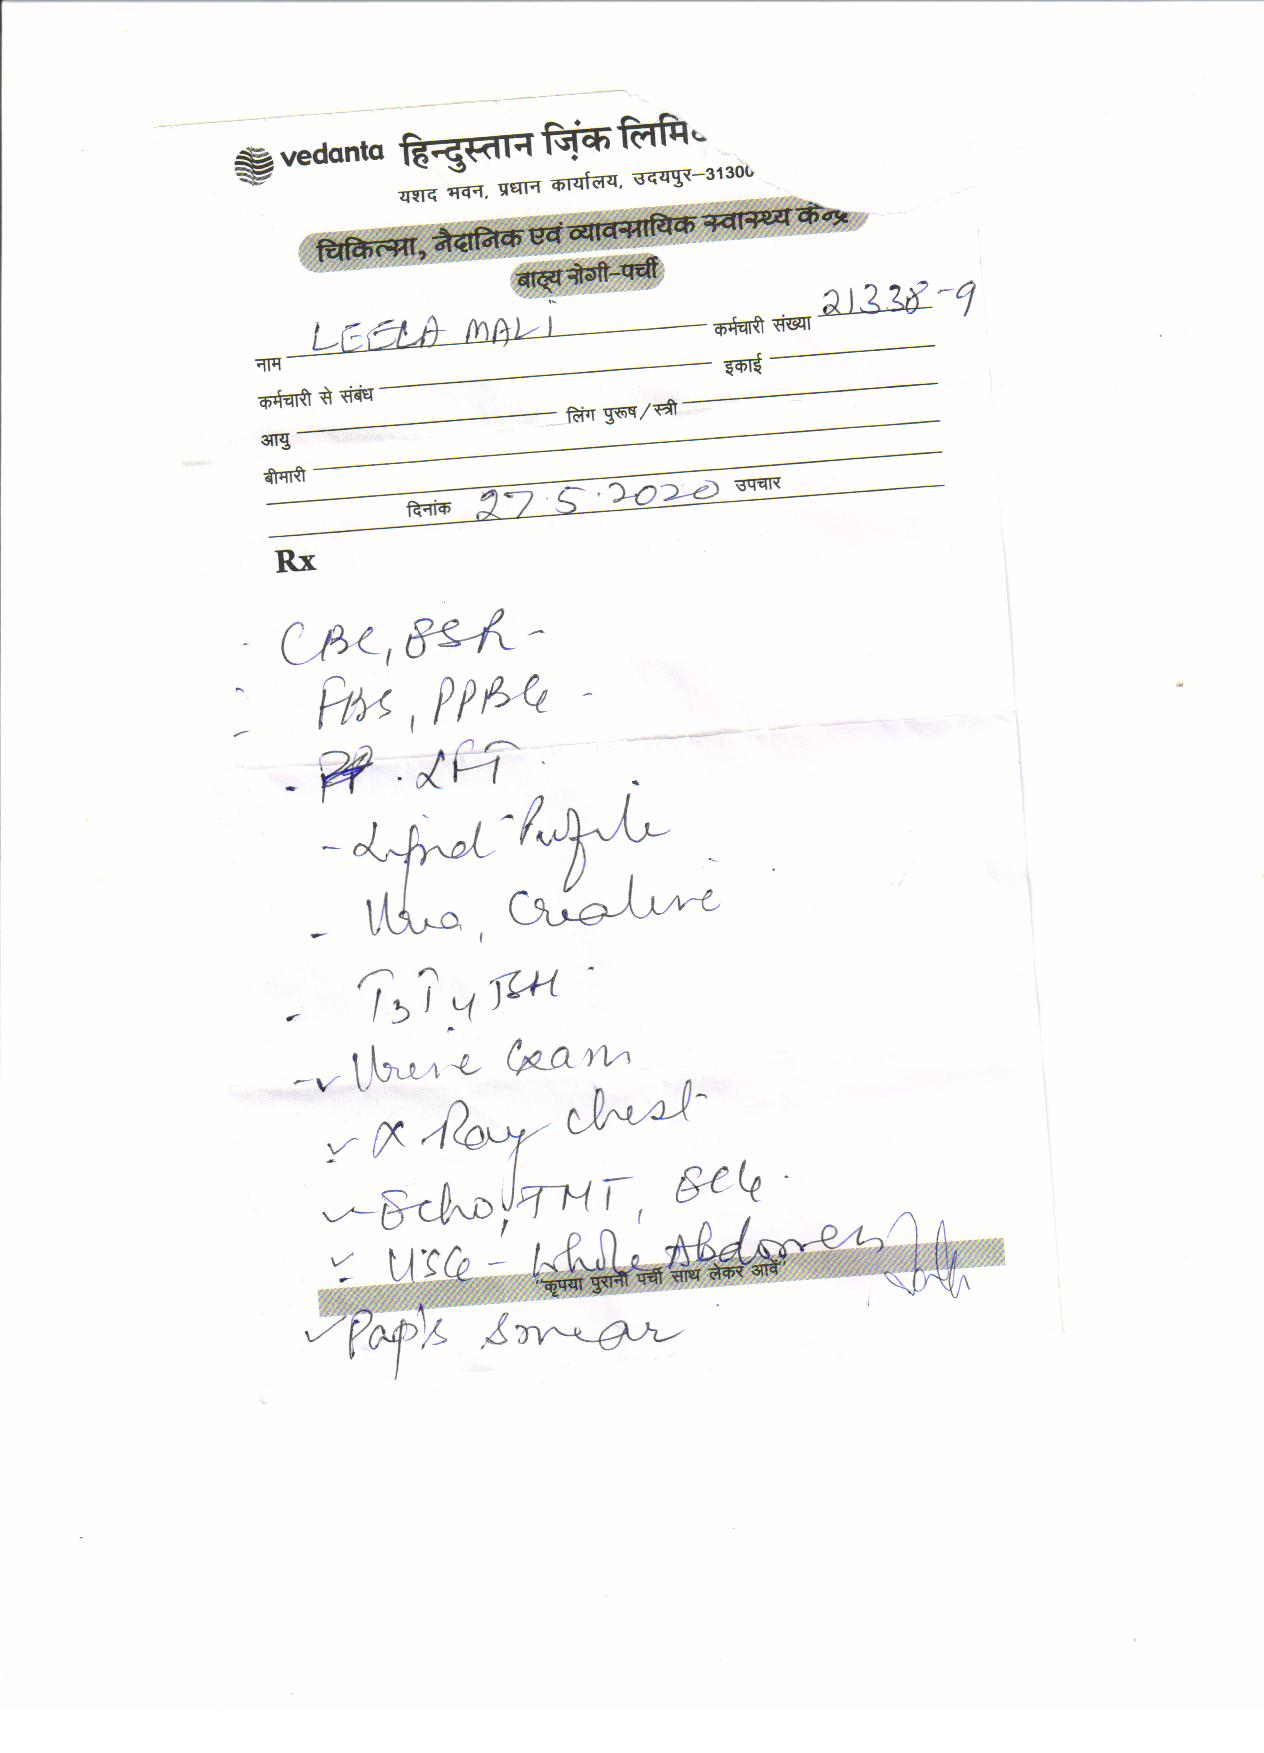 vedanta हिन्दुस्तान ज़िंक लिमि
यशद भवन, प्रधान कार्यालय, उदयपुर–31300
चिकित्सा, नैदानिक एवं व्यावसायिक स्वास्थ्य केन्द्र
बाह्य रोगी-पर्ची
नाम LEELA MALI कर्मचारी संख्या 21338-9
कर्मचारी से संबंध इकाई
आयु लिंग पुरूष/स्त्री
बीमारी
दिनांक 27.5.2020 उपचार
Rx
CBC, ESR -
FBS, PPBG -
- LFT
- Lipid Profile
- Urea, Creatine
- T3 T4 TSH
- Urine Exam
X Ray Chest
Echo, TMT, ECG.
USG - Whole Abdomen
"कृपया पुरानी पर्ची साथ लेकर आवें"
Pap's smear